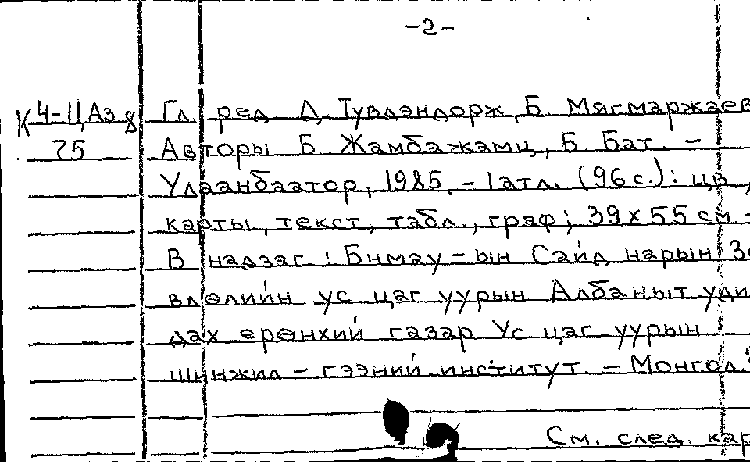 -2-
К 4-Ц.Аз.8 Гл. ред. Д. Тувдэндорж, Б. Мягмаржаев
75 Авторы Б. Жамбажамц, Б. Бат. –
Улаанбаатор, 1985. – 1 атл. (96 с.): цв.,
карты, текст, табл., граф; 39х55 см –
В надзаг.: Бнмау-ын Сайд нарын Зо
влөлийн ус цаг уурын Албаныг уди
дах ерөнхий газар Ус цаг уурын
шинжил – гээний институт. – Монгол.
См. след. кар